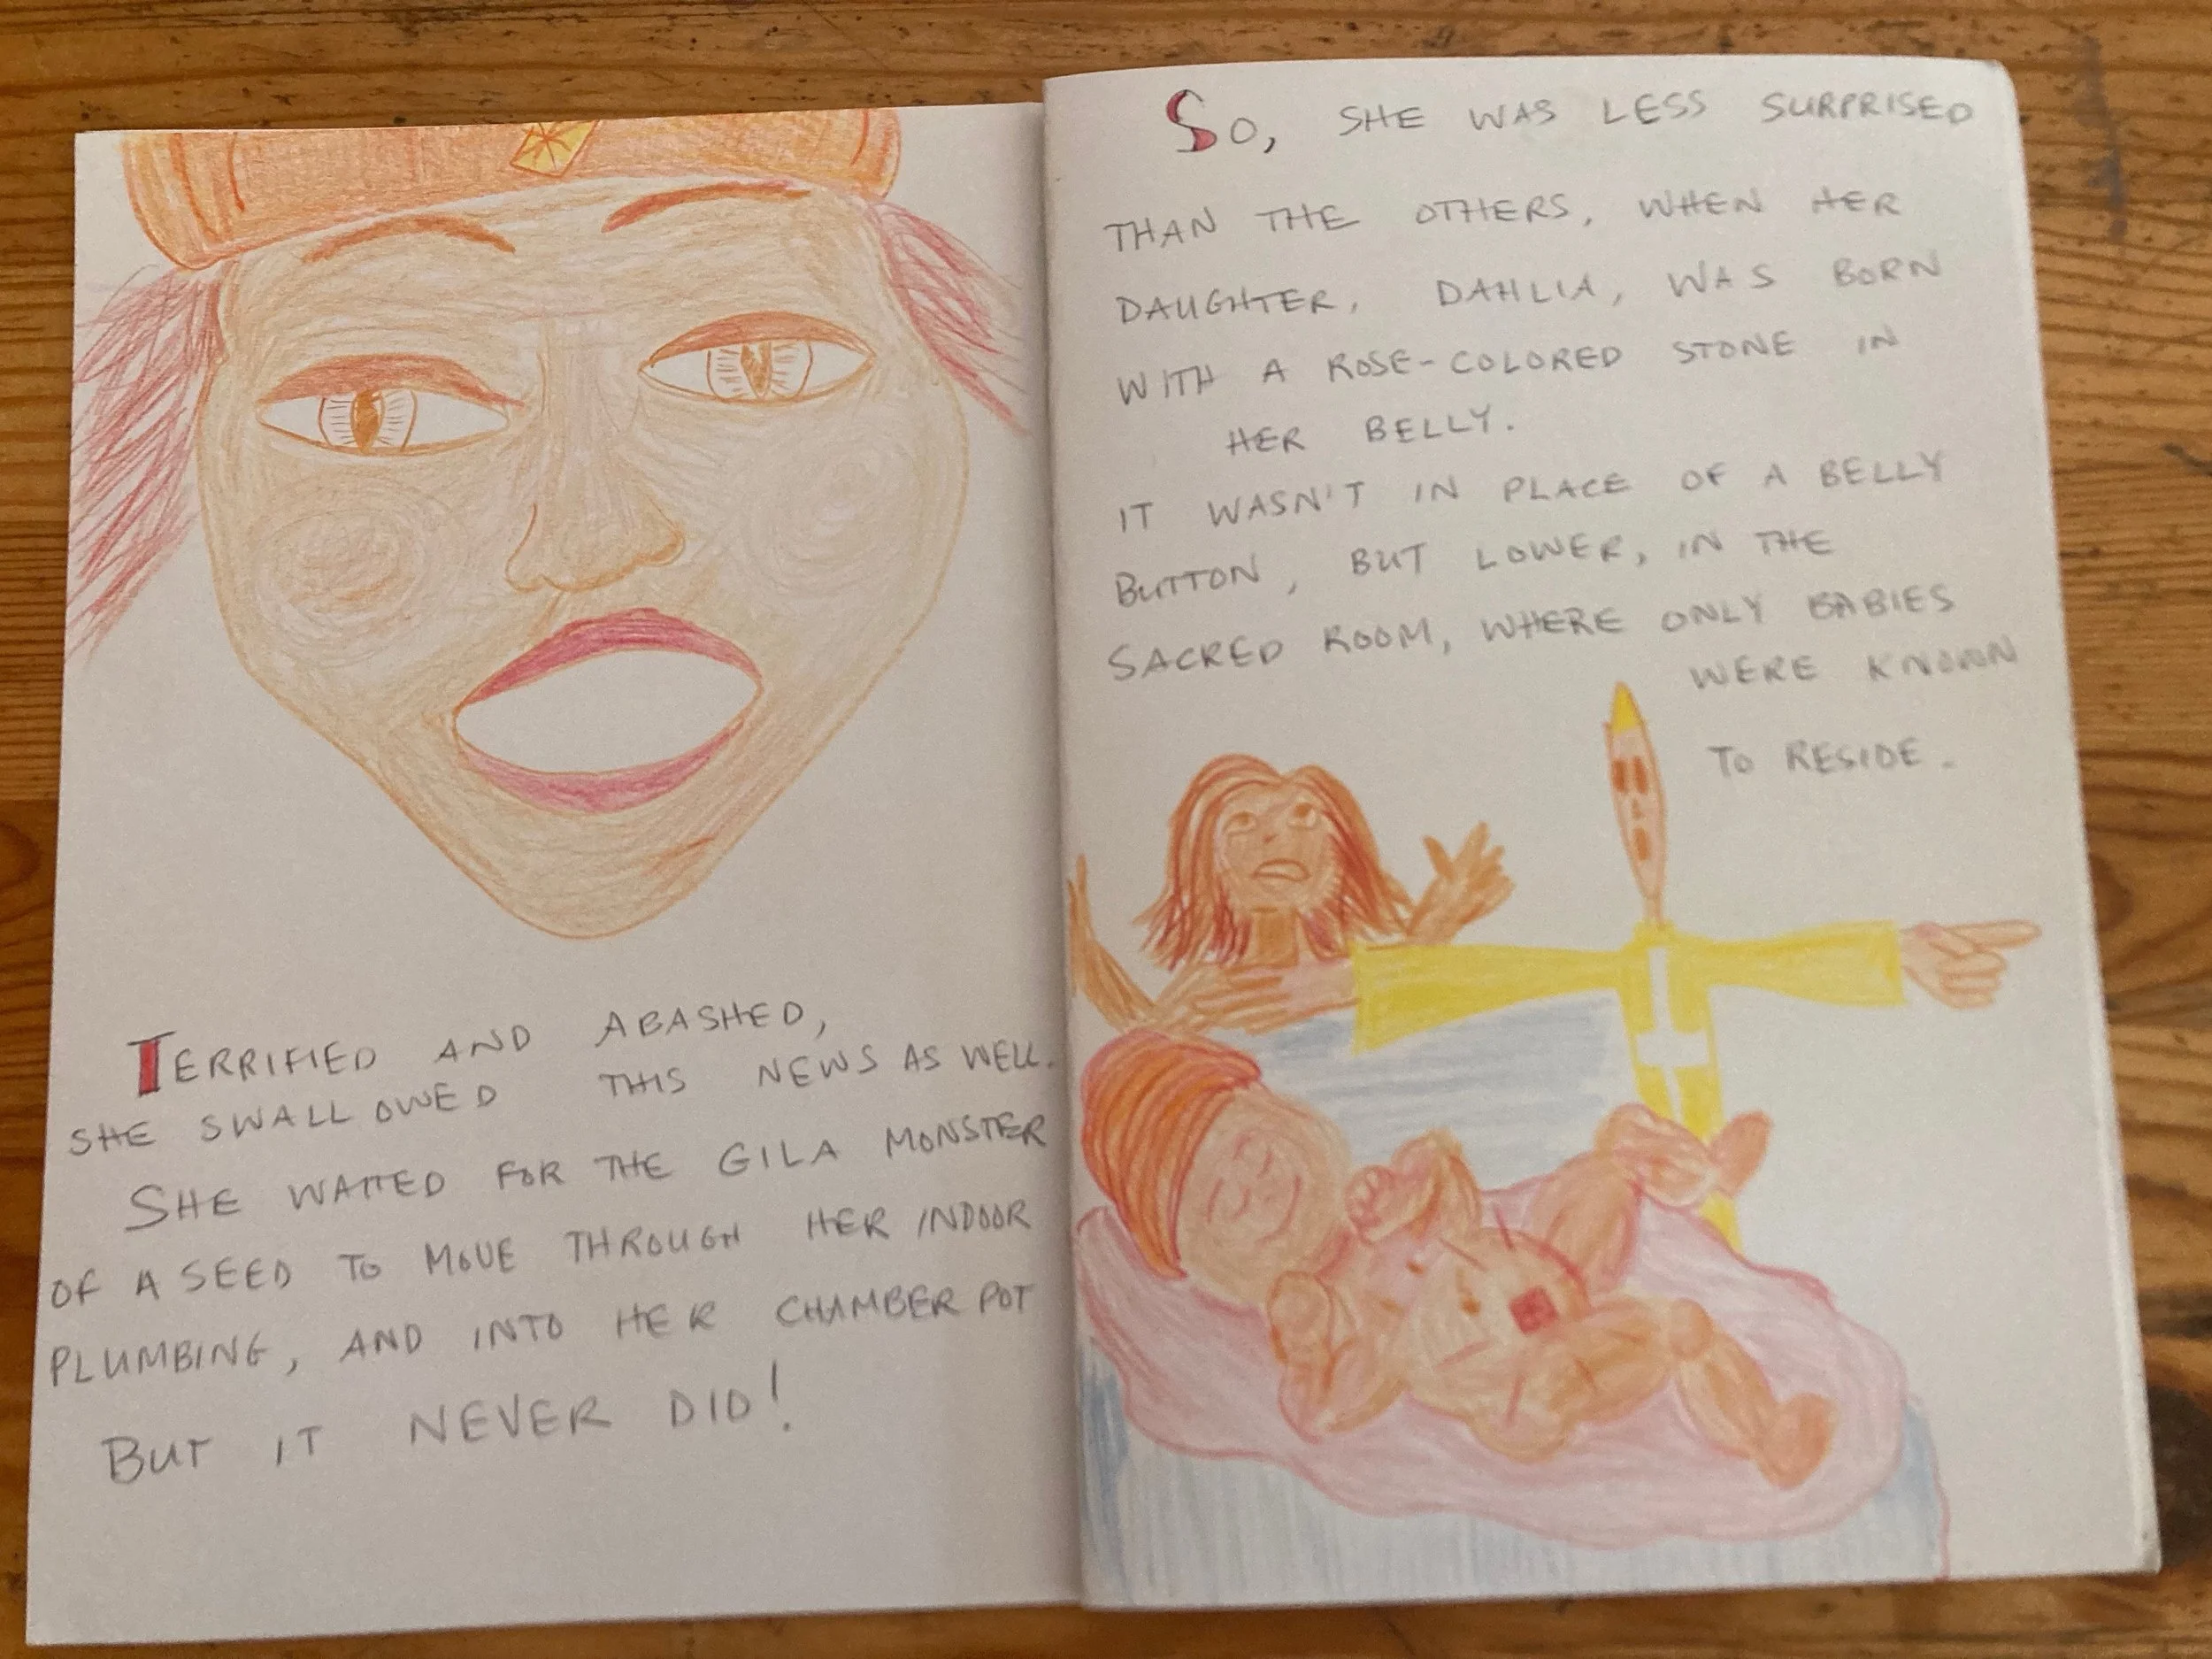 TERRIFIED AND ABASHED,
SHE SWALLOWED THIS NEWS AS WELL.
SHE WAITED FOR THE GILA MONSTER
OF A SEED TO MOVE THROUGH HER INDOOR
PLUMBING, AND INTO HER CHAMBER POT
BUT IT NEVER DID!
SO, SHE WAS LESS SURPRISED
THAN THE OTHERS, WHEN HER
DAUGHTER, DAHLIA, WAS BORN
WITH A ROSE-COLORED STONE IN
HER BELLY.
IT WASN'T IN PLACE OF A BELLY
BUTTON, BUT LOWER, IN THE
SACRED ROOM, WHERE ONLY BABIES
WERE KNOWN
TO RESIDE.